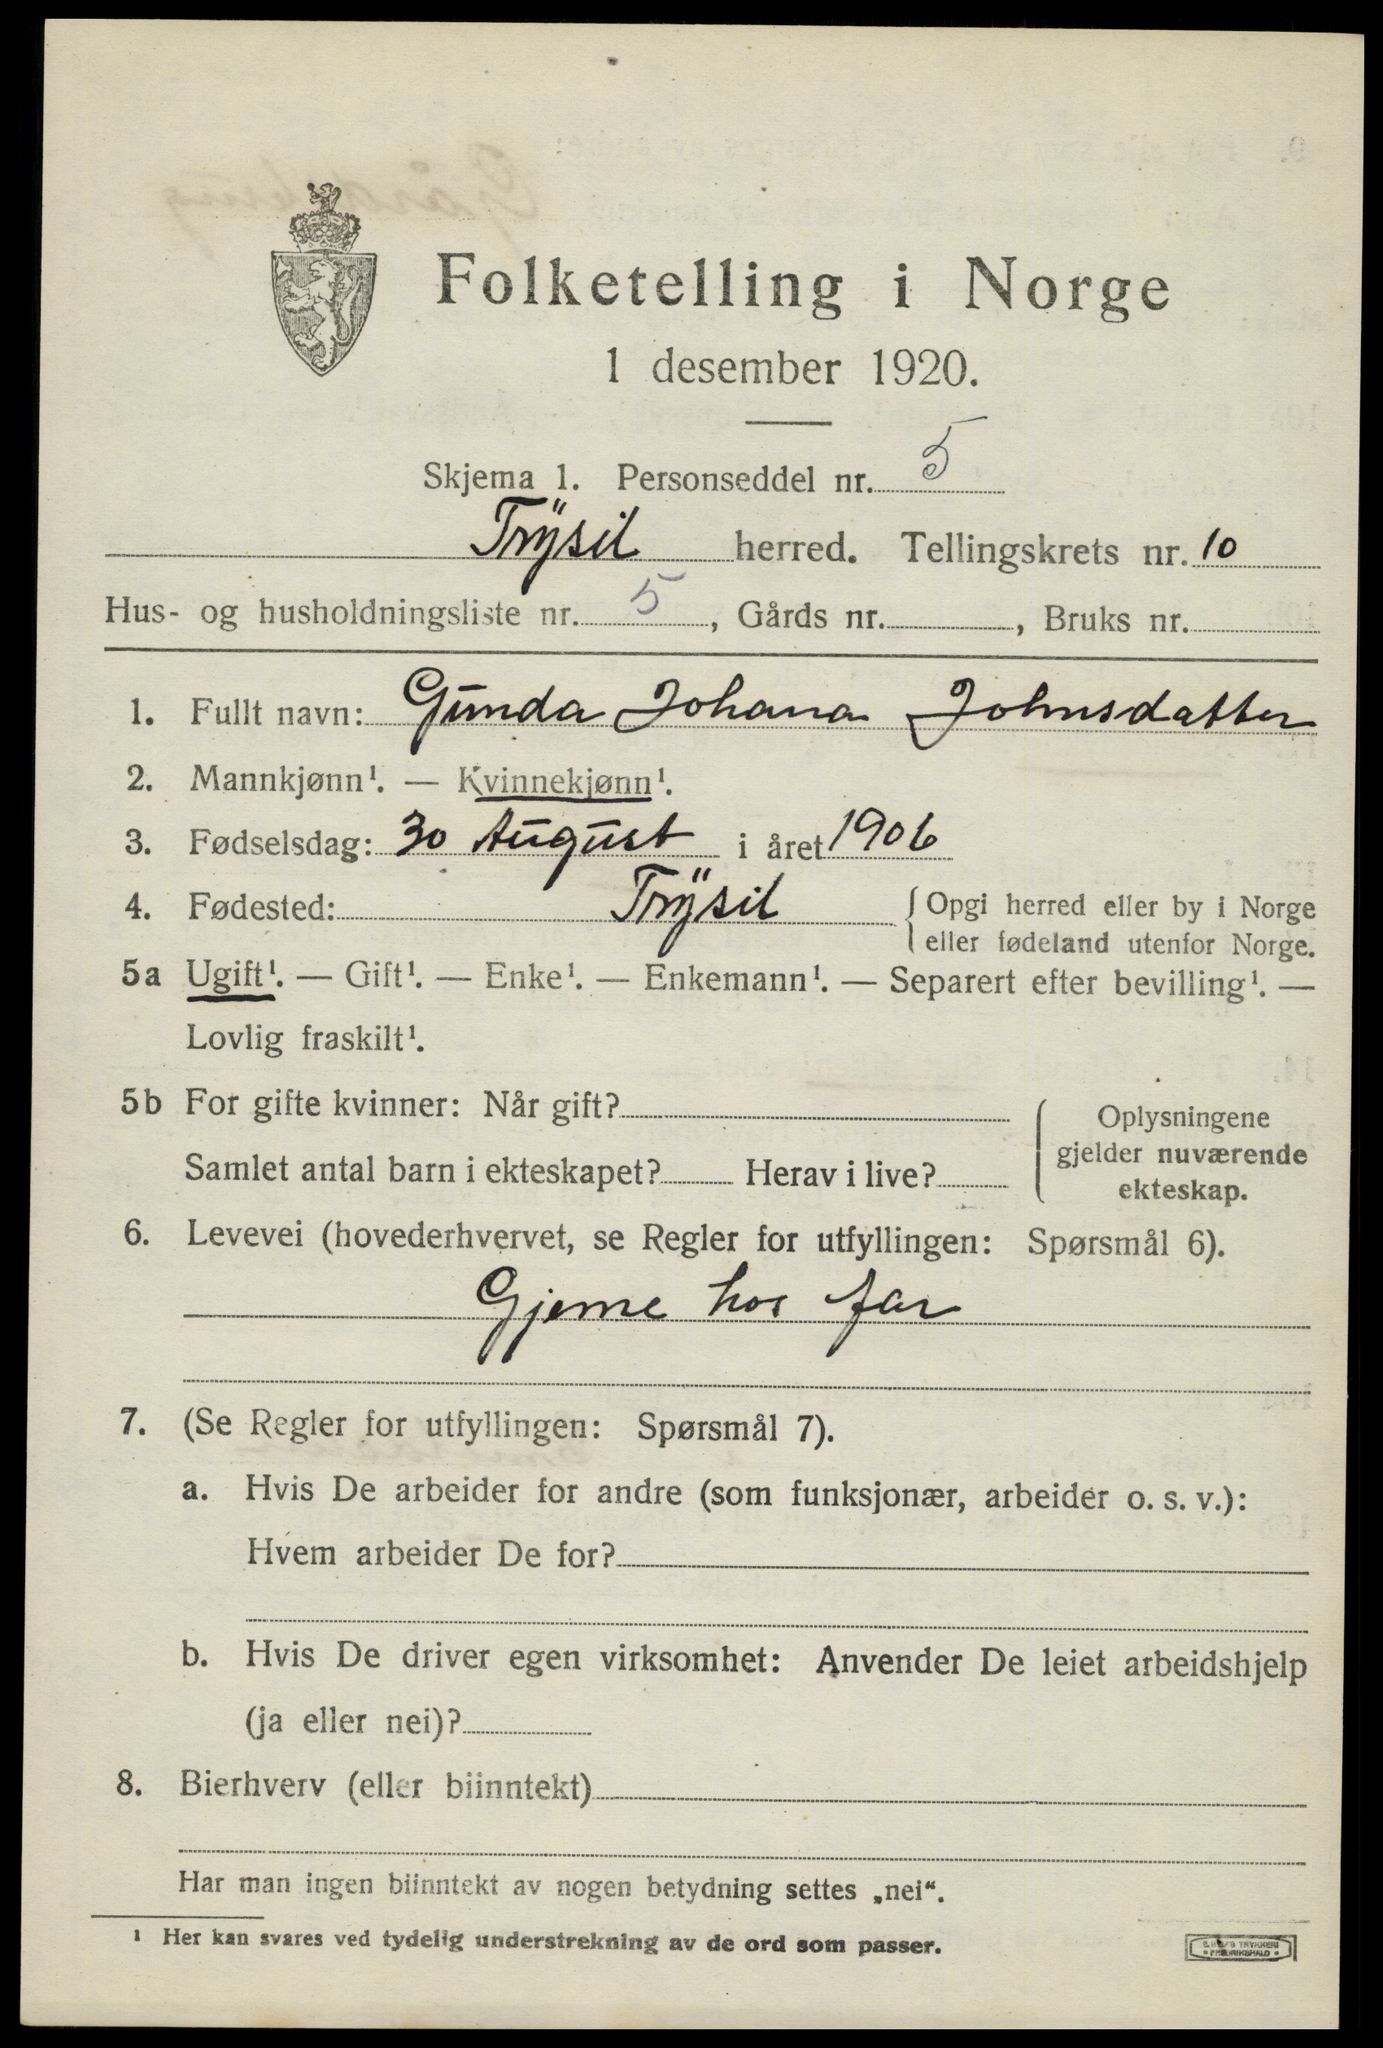 Folketelling i Norge
1 desember 1920.
Skjema 1. Personseddel nr. 5
Trÿsil herred. Tellingskrets nr. 10
Hus- og husholdningsliste nr. 5, Gårds nr. , Bruks nr.
1. Fullt navn: Gunda Johana Johnsdatter
2. Mannkjønn¹. — Kvinnekjønn¹.
3. Fødselsdag: 30 August i året 1906
4. Fødested: Trÿsil { Opgi herred eller by i Norge
eller fødeland utenfor Norge.
5a Ugift¹. — Gift¹. — Enke¹. — Enkemann¹. — Separert efter bevilling¹. —
Lovlig fraskilt¹.
5b For gifte kvinner: Når gift?
Samlet antal barn i ekteskapet? Herav i live?
Oplysningene
gjelder nuværende
ekteskap.
6. Levevei (hovederhvervet, se Regler for utfyllingen: Spørsmål 6).
Gjeme hos far
7. (Se Regler for utfyllingen: Spørsmål 7).
a. Hvis De arbeider for andre (som funksjonær, arbeider o. s. v.):
Hvem arbeider De for?
b. Hvis De driver egen virksomhet: Anvender De leiet arbeidshjelp
(ja eller nei)?
8. Bierhverv (eller biinntekt)
Har man ingen biinntekt av nogen betydning settes „nei“.
¹ Her kan svares ved tydelig understrekning av de ord som passer.
TRYKKERI
FREDRIKSHALD